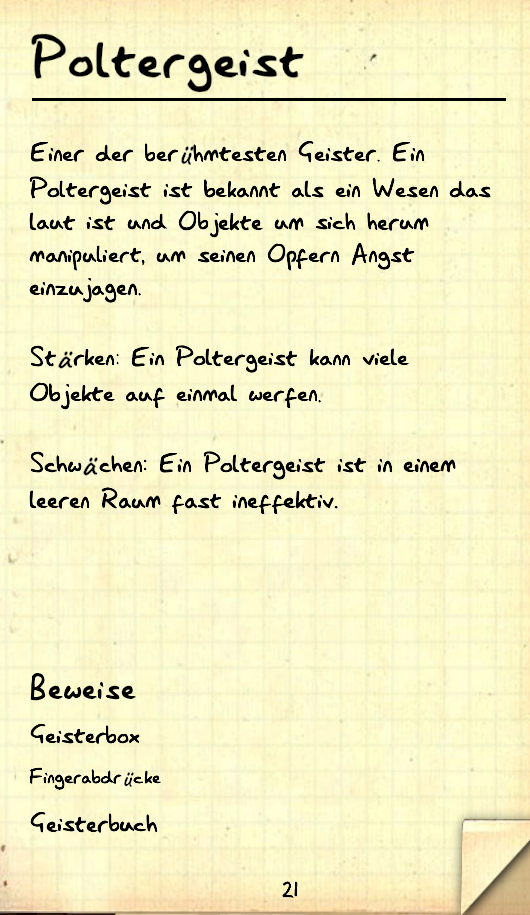 Poltergeist
Einer der berühmtesten Geister. Ein
Poltergeist ist bekannt als ein Wesen das
laut ist und Objekte um sich herum
manipuliert, um seinen Opfern Angst
einzujagen.
Stärken: Ein Poltergeist kann viele
Objekte auf einmal werfen.
Schwächen: Ein Poltergeist ist in einem
leeren Raum fast ineffektiv.
Beweise
Geisterbox
Fingerabdrücke
Geisterbuch
21